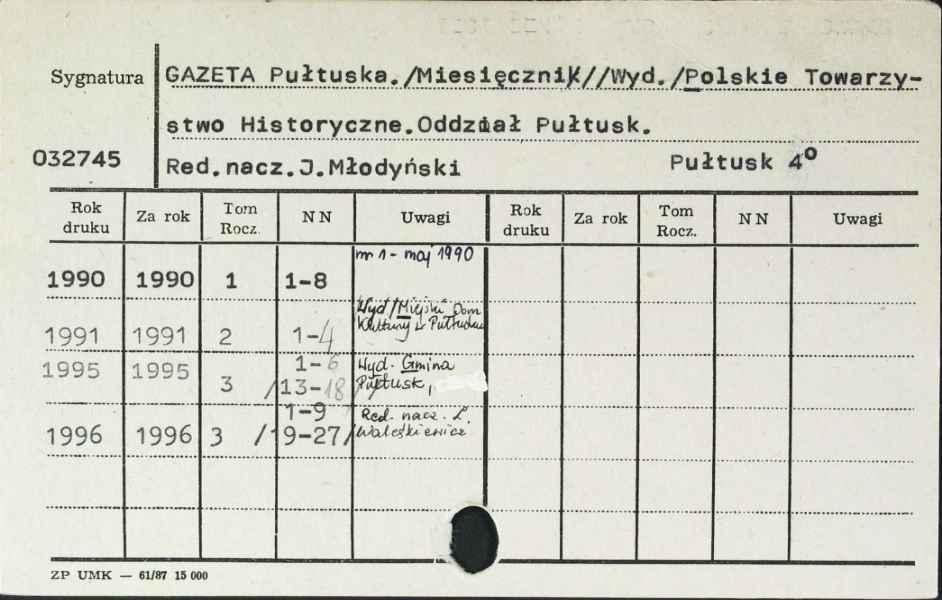 Sygnatura GAZETA Pułtuska./Miesięcznik//Wyd./Polskie Towarzy-
stwo Historyczne.Oddział Pułtusk.
032745 Red.nacz.J.Młodyński Pułtusk 4º
Rok druku Za rok Tom Rocz. NN Uwagi Rok druku Za rok Tom Rocz. NN Uwagi
nr 1 - maj 1990
1990 1990 1 1-8
Wyd/Miejski Dom
Kultury w Pułtusku
1991 1991 2 1-4
1995 1995 3 1-6 Wyd. Gmina
/13-18/ Pułtusk,
1-9 Red. nacz. L.
1996 1996 3 /19-27/
ZP UMK — 61/87 15 000